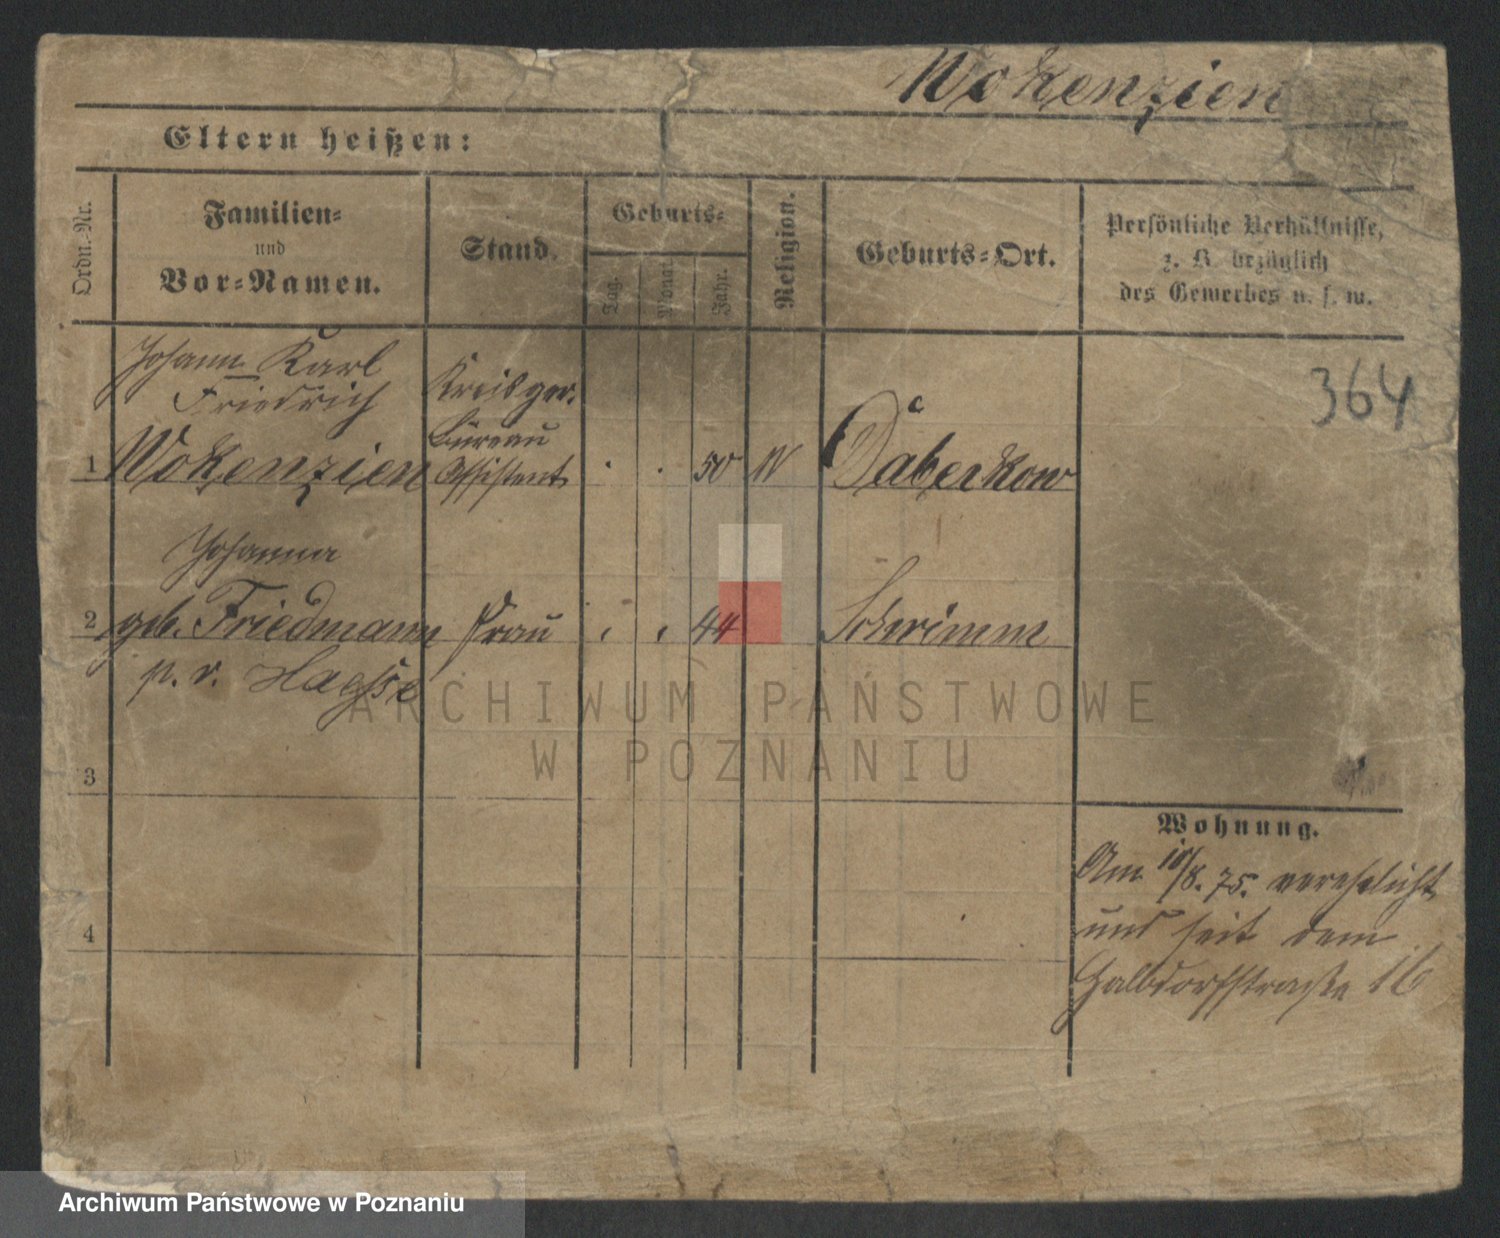 Wokenzien
Eltern heißen:
Ordn.-Nr.
Familien-
und
Vor-Namen.
Stand.
Geburts-
Tag.
Monat.
Jahr.
Religion.
Geburts-Ort.
Persönliche Verhältnisse,
z. B. bezüglich
des Gewerbes u. s. w.
Johann Karl
Friedrich
1 Wokenzien
Kreisger.
Büreau
Assistent
50
Daberkow
364
Johanna
2 geb. Friedmann Frau 44 Schrimm
p. v.
3
4
Wohnung.
Am 10/8. 75. verehelicht
und seit dem
Halbdorfstraße 16
ARCHIWUM PAŃSTWOWE
W POZNANIU
Archiwum Państwowe w Poznaniu